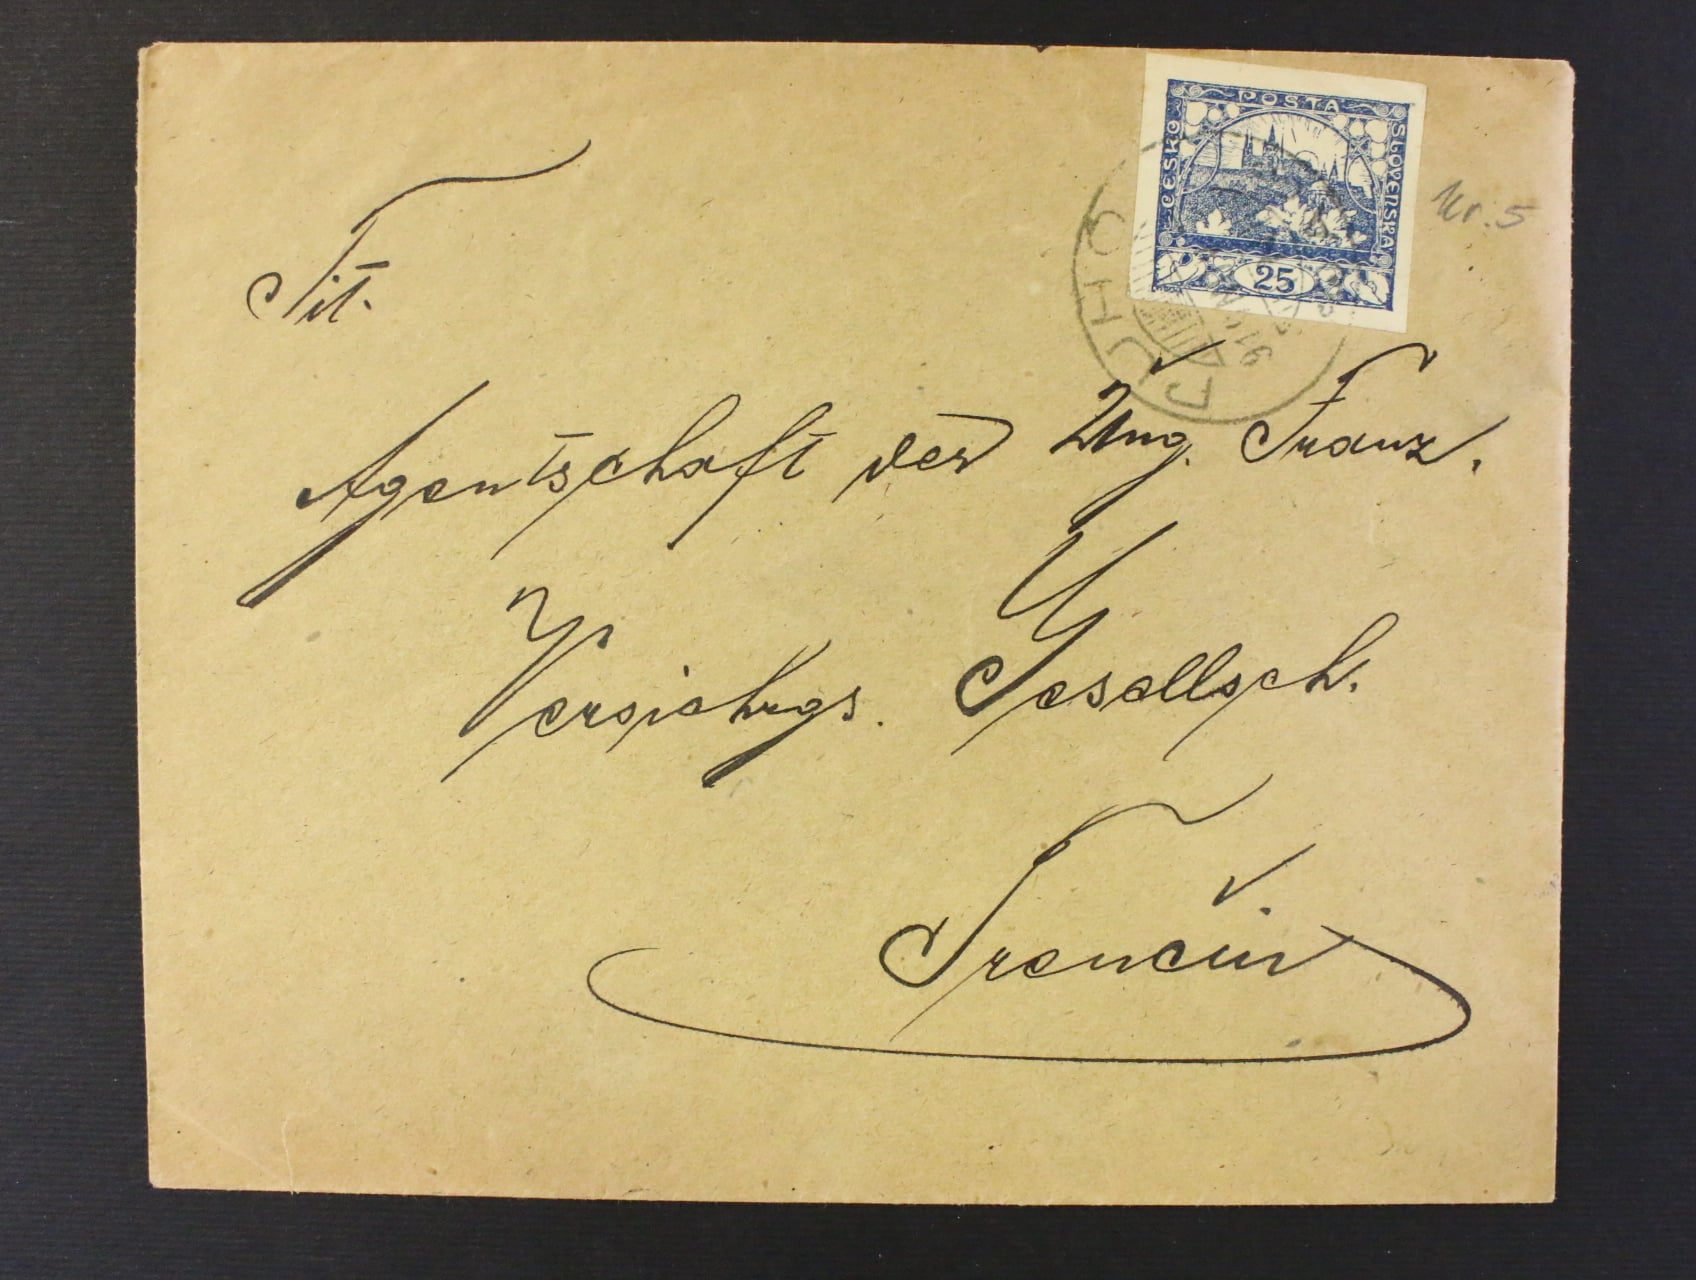 POSTA
ČESKO
SLOVENSKÁ
25
PÚCHO
Kr. 5
Tit.
Agentschaft der Ung. Franz.
Versichrgs. Gesellsch.
Trenčin